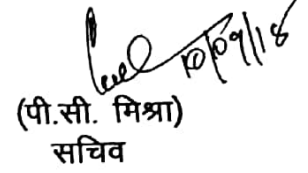 10/09/18
(पी.सी. मिश्रा)
सचिव